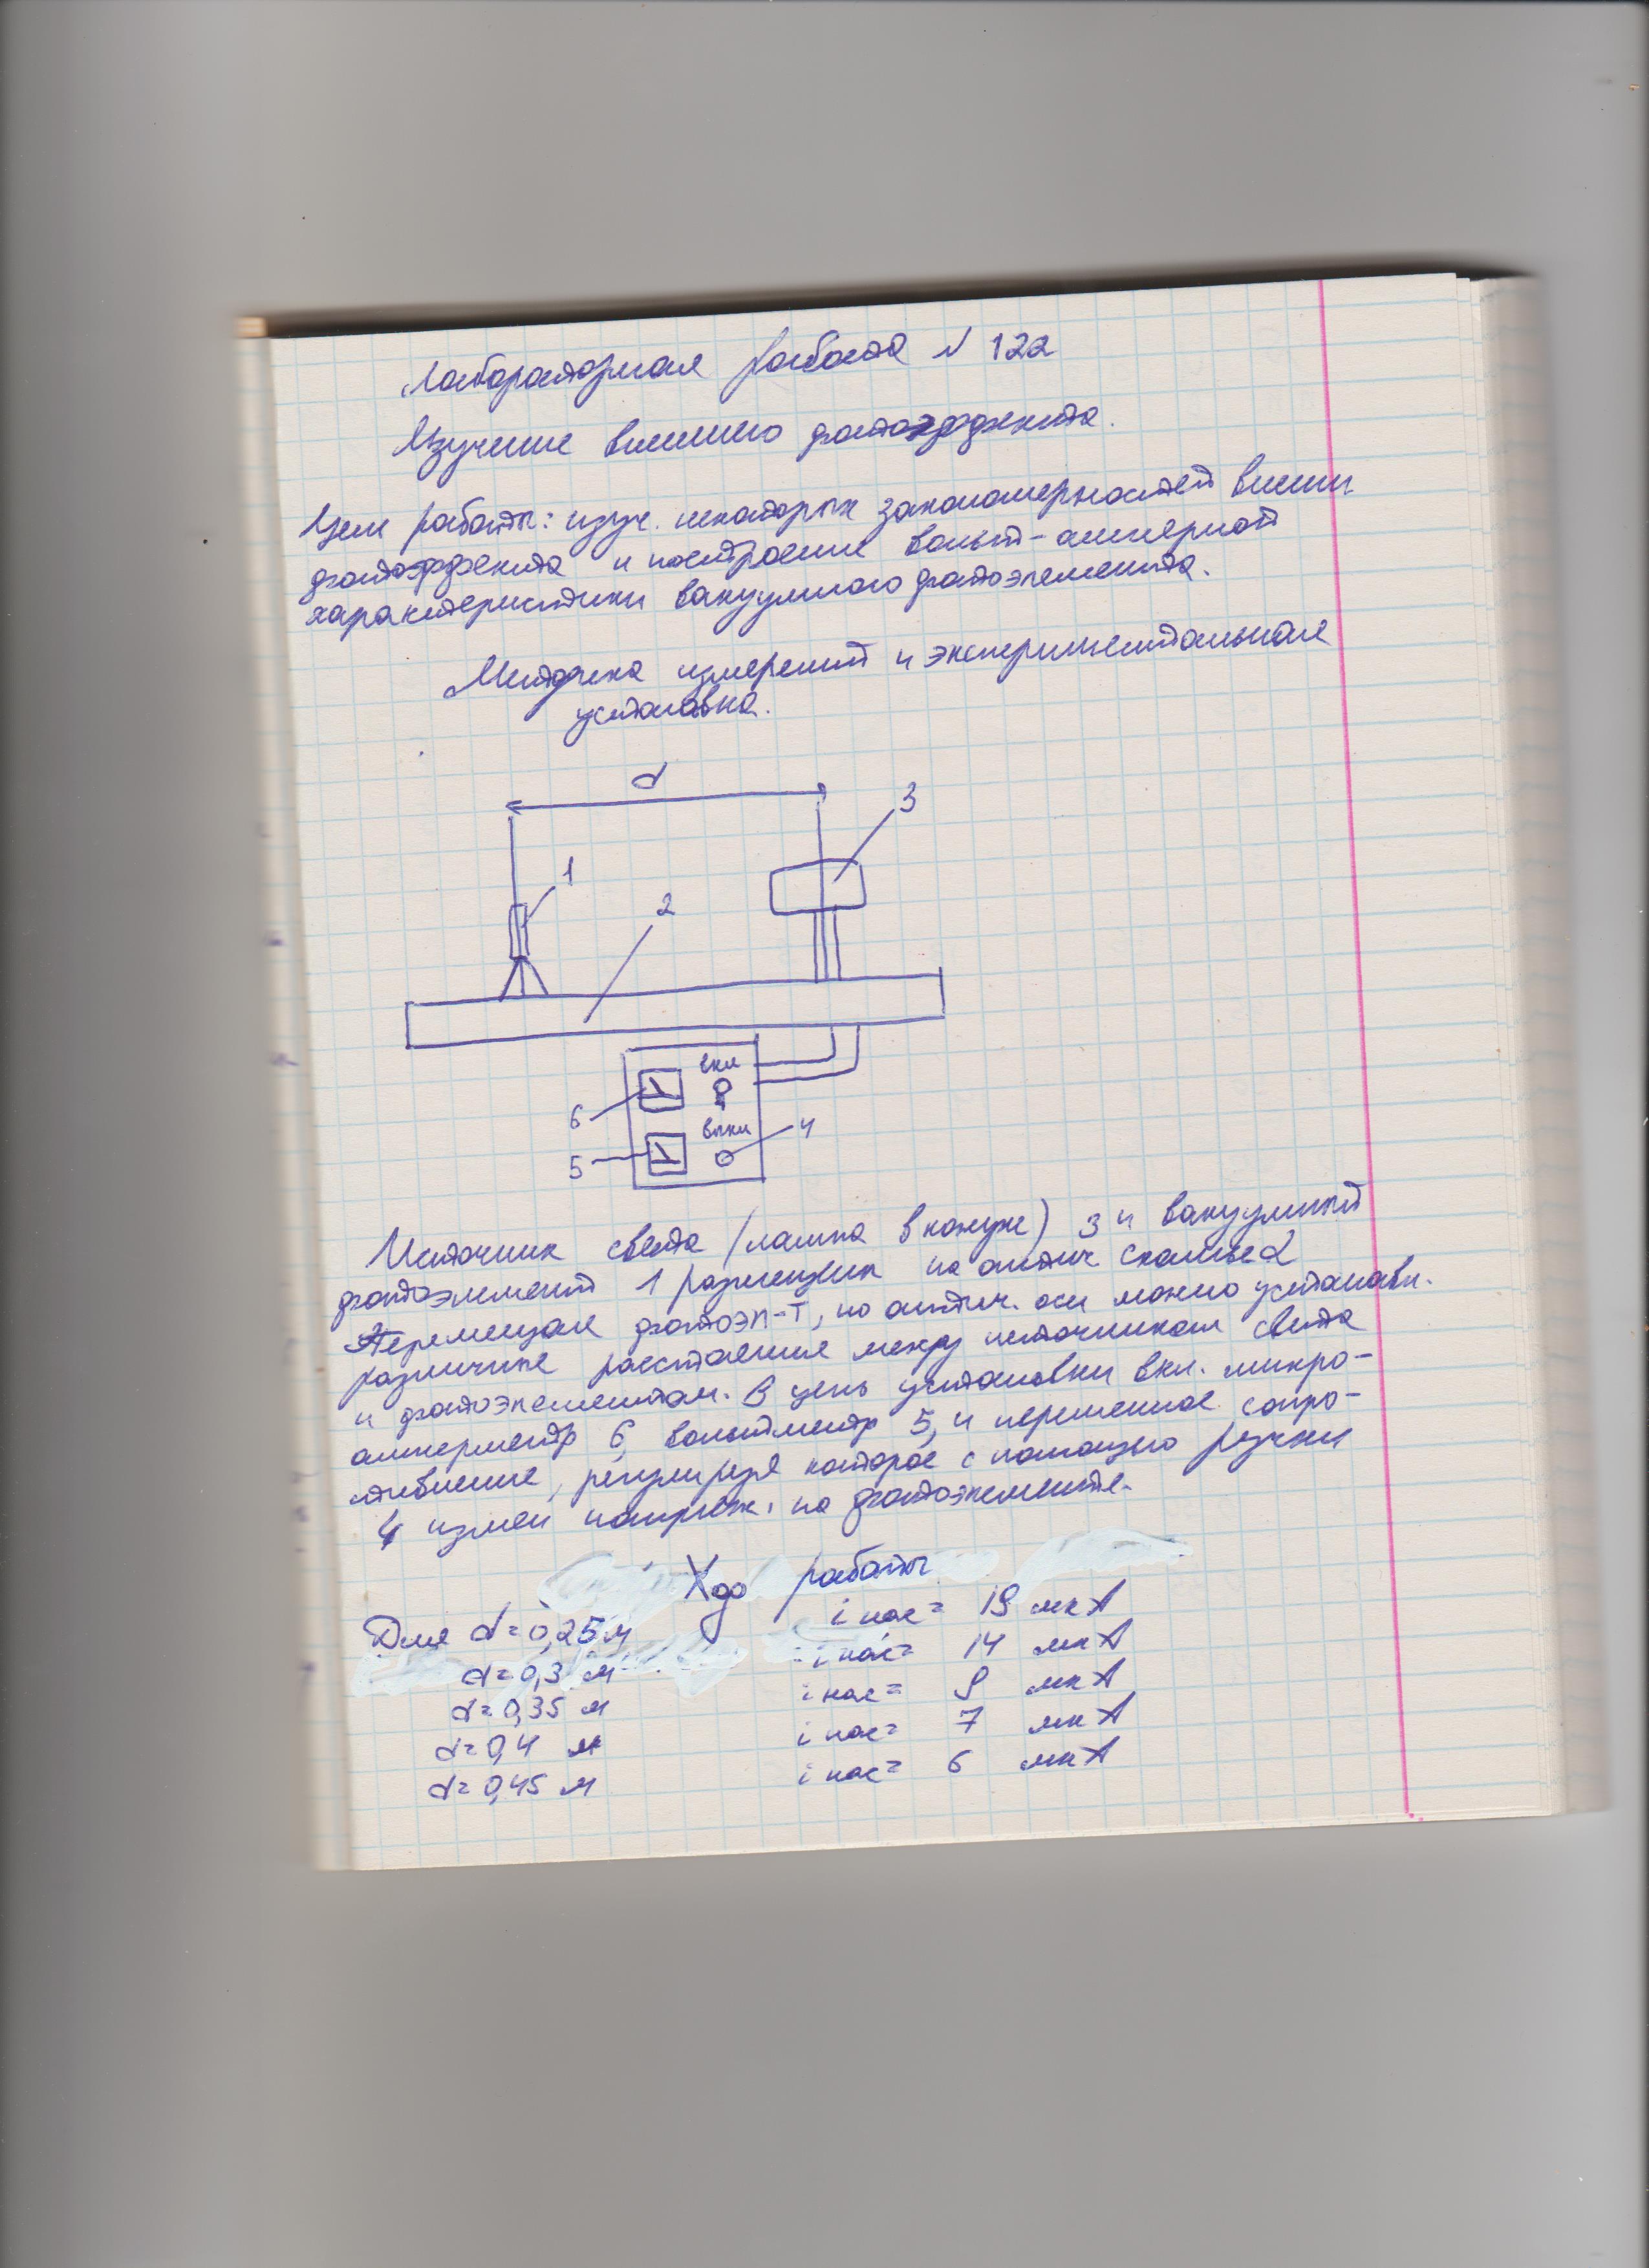 Лабораторная работа N 122
Изучение внешнего фотоэффекта.
Цель работы: изуч. некоторых закономерностей внешн
фотоэффекта и построение вольт-амперной
характеристики вакуумного фотоэлемента.
Методика измерений и экспериментальная
установка.
d
3
1
2
вкл
6
выкл
4
5
Источник света (лампа в кожухе) 3 и вакуумный
фотоэлемент 1 размещены на оптич скамье 2
Перемещая фотоэл-т, по оптич. оси можно установл.
различные расстояния между источником света
и фотоэлементом. В цепь установки вкл. микро-
амперметр 6, вольтметр 5, и переменное сопро-
тивление, регулируя которое с помощью ручки
4 измен напряж. на фотоэлементе.
Ход работы
Для d=0,25 м i нас = 19 мкА
d=0,3 м i нас = 14 мкА
d=0,35 м i нас = 9 мкА
d=0,4 м i нас = 7 мкА
d=0,45 м i нас = 6 мкА